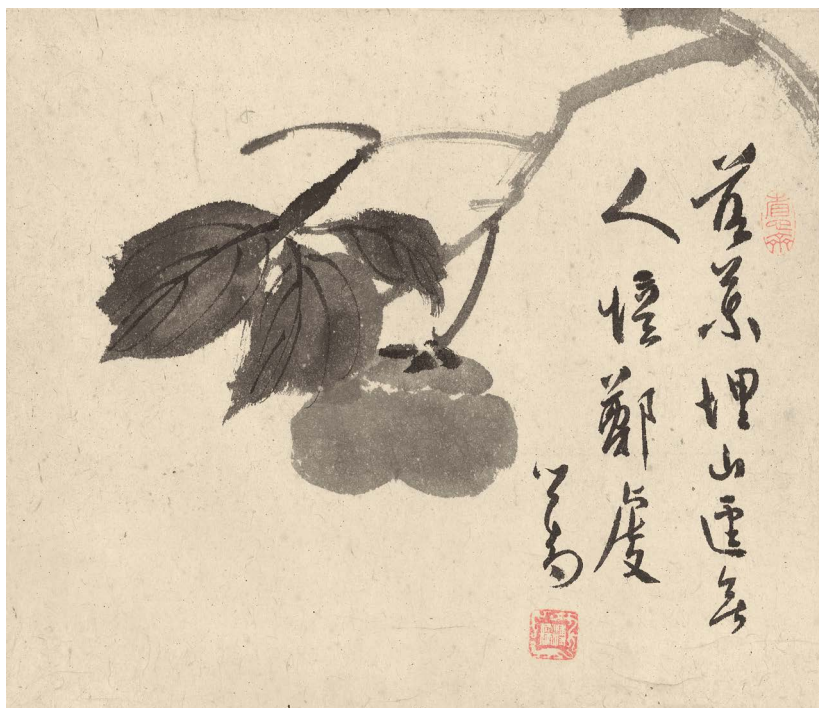 落葉埋山逕無
人憶鄭虔
心畬